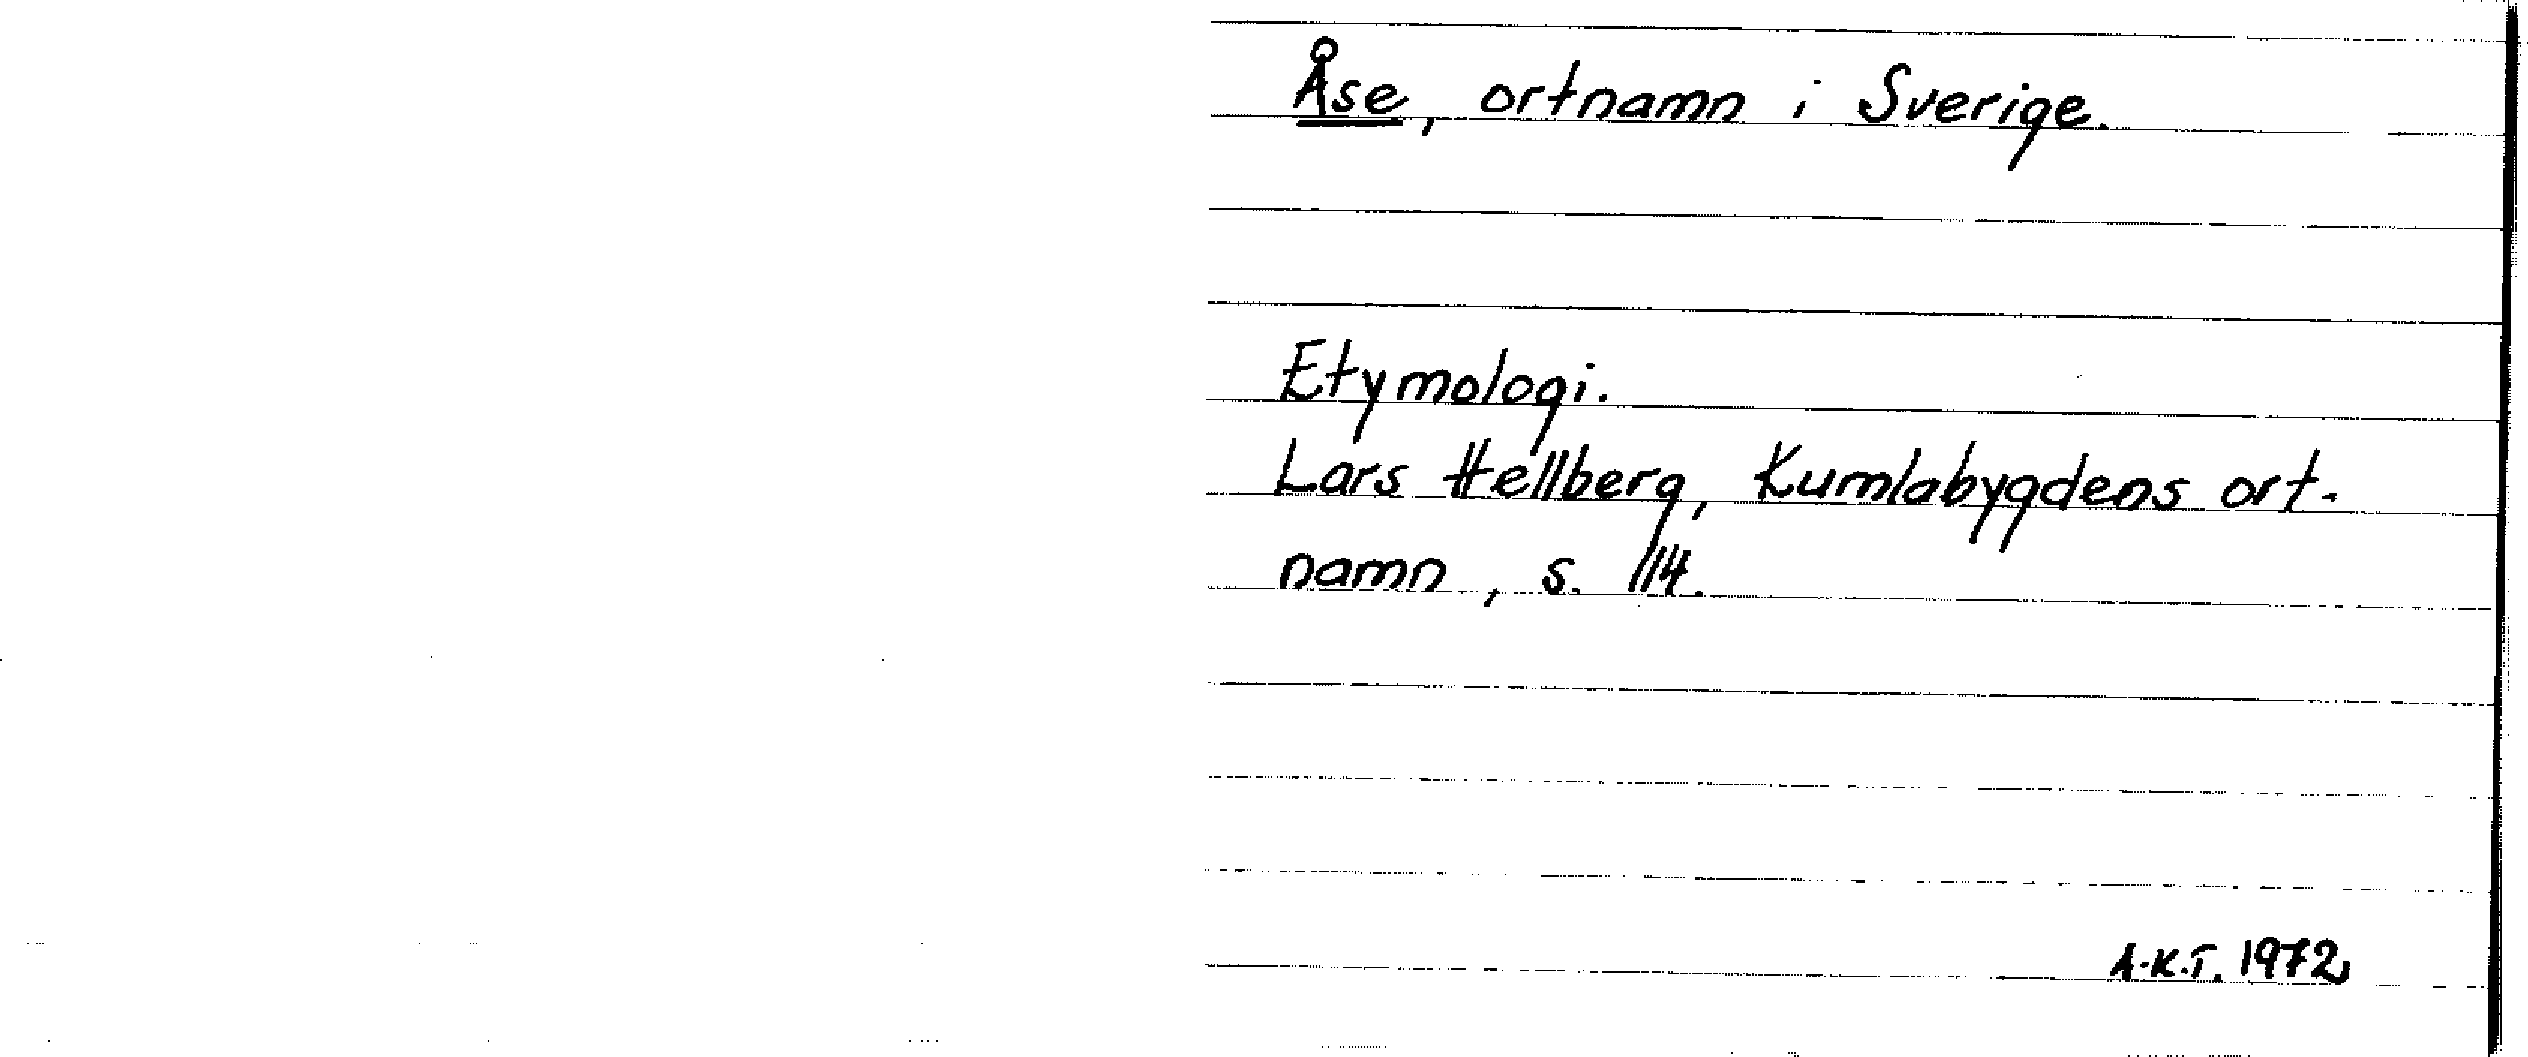 Åse, ortnamn i Sverige.
Etymologi.
Lars Hellberg, Kumlabygdens ort-
namn, s. 114.
A.K.T. 1972